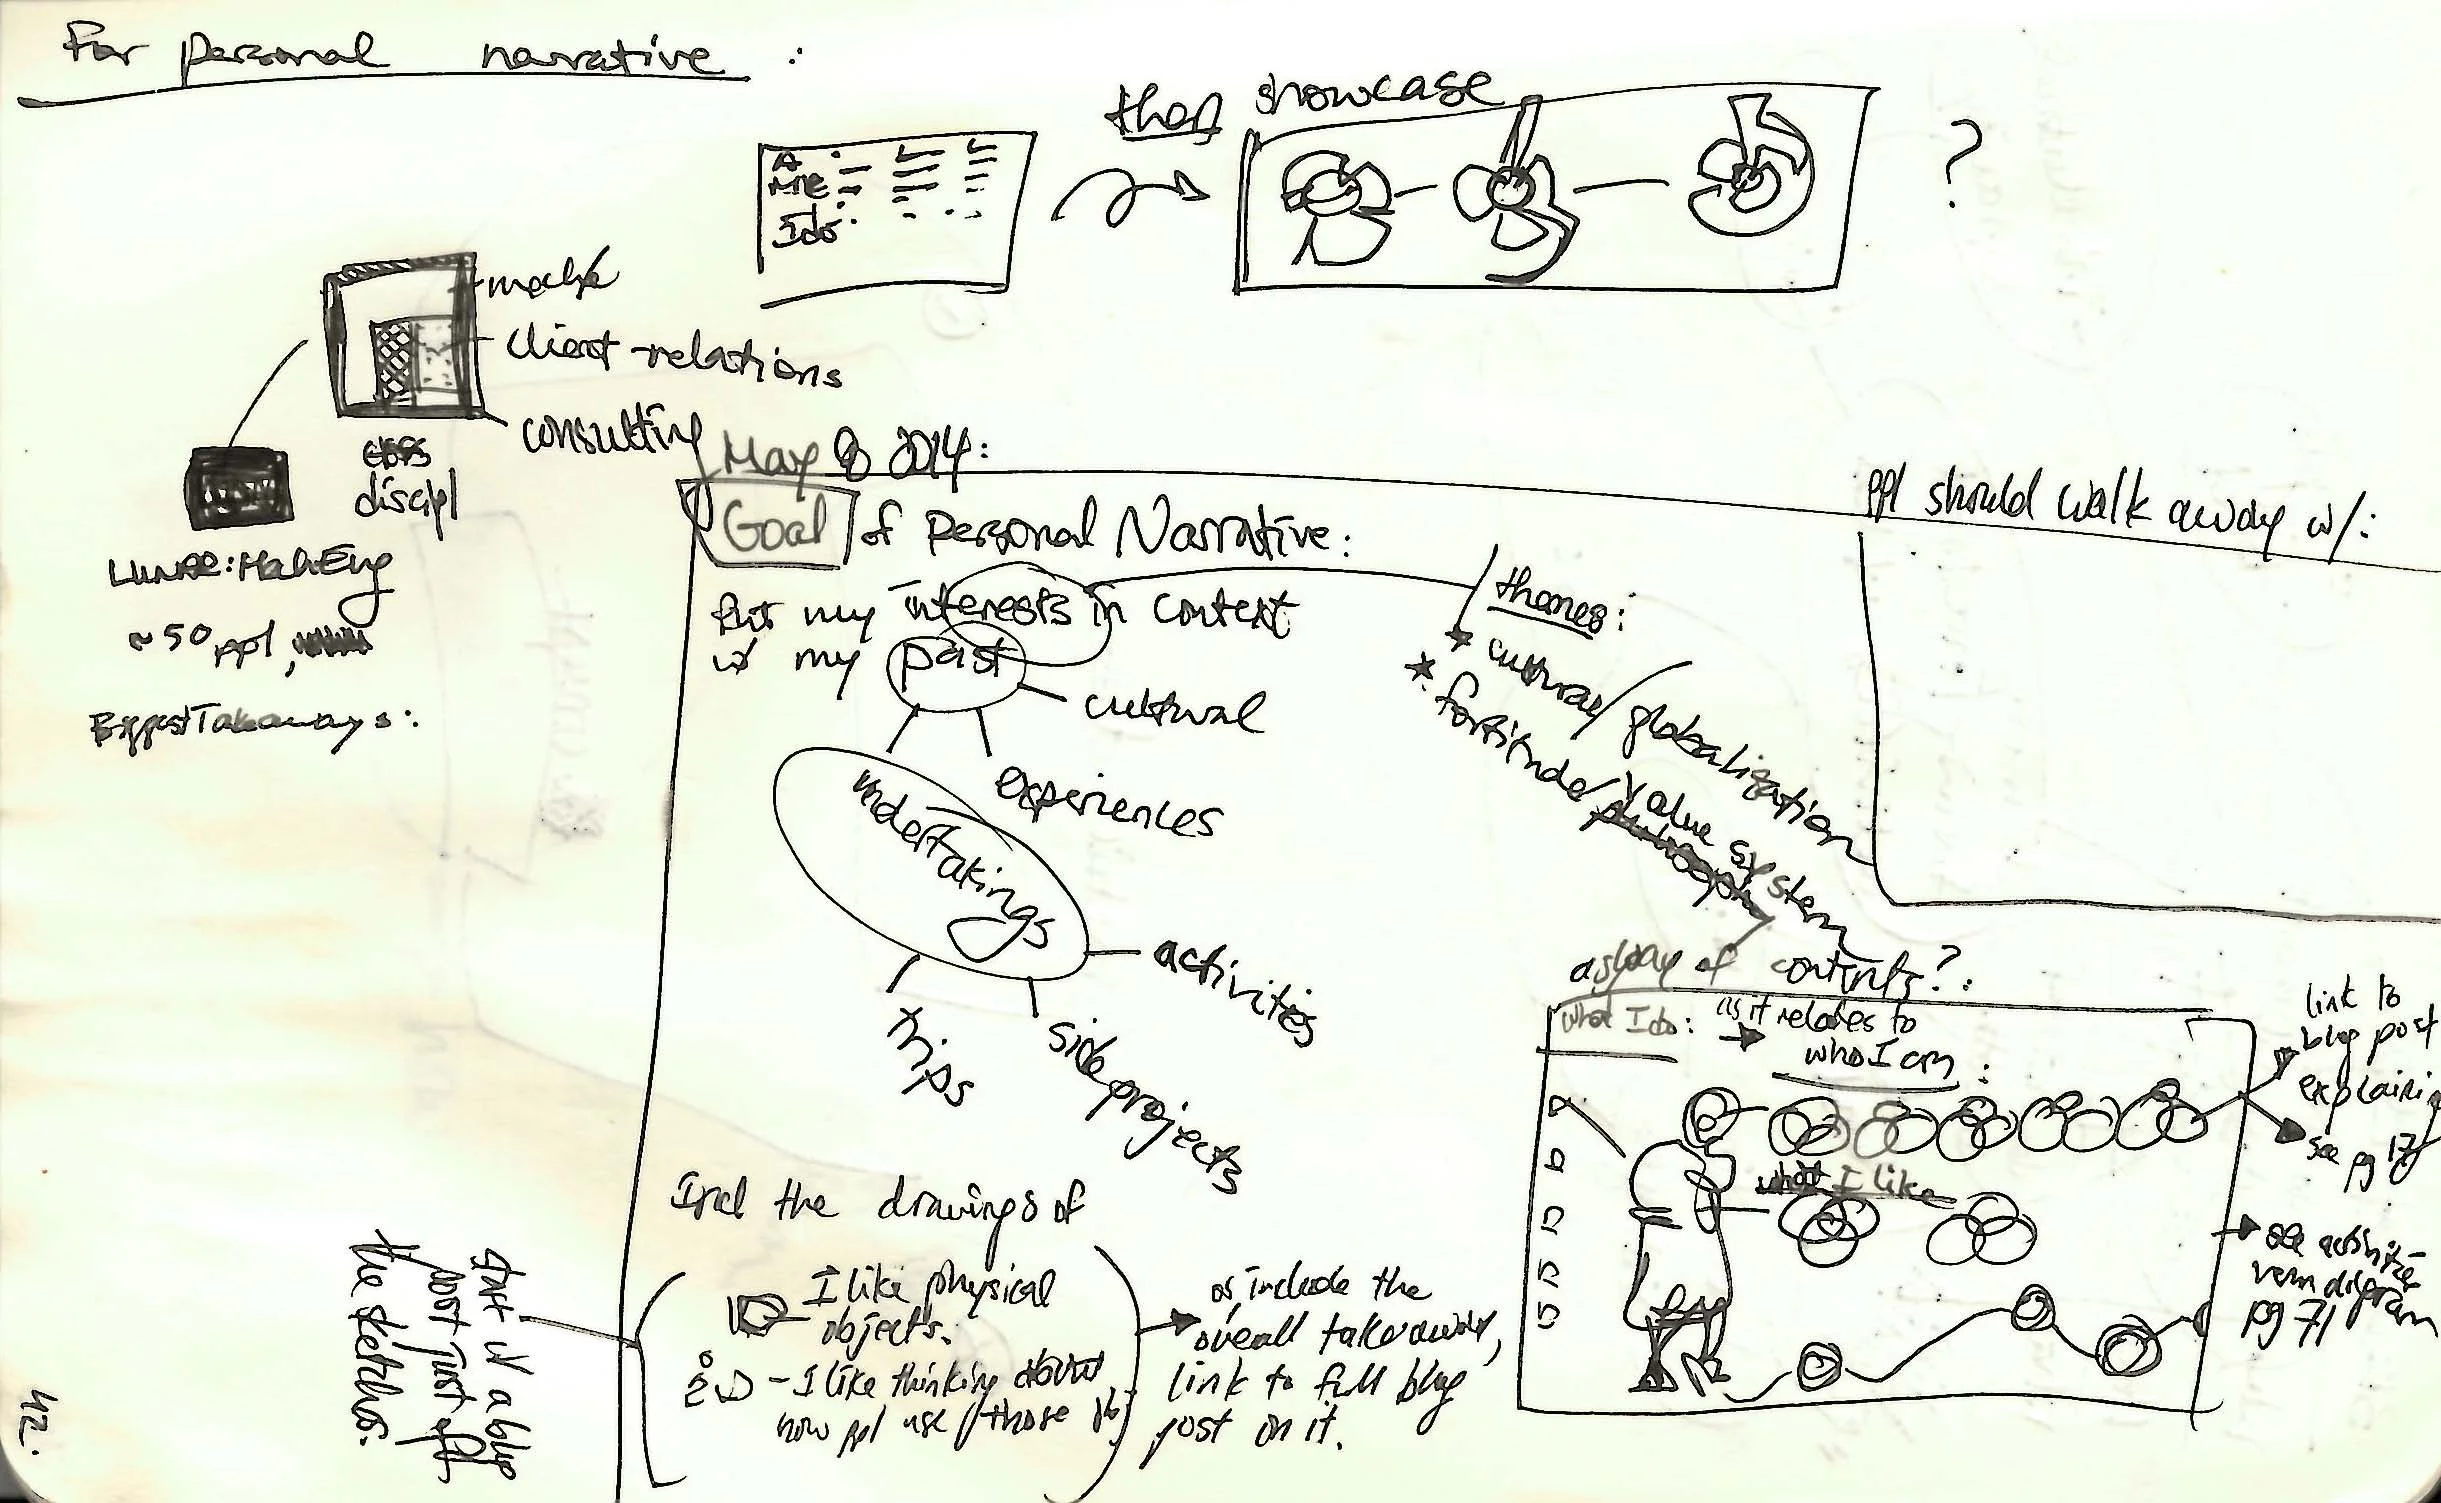 For personal narrative :
then showcase
A
Me
I do:
?
client relations
consulting
discipl
~50 ppl,
Biggest Takeaways:
May 8 2014:
Goal of Personal Narrative:
Put my interests in context
w/ my past
cultural
experiences
undertakings
activities
side projects
trips
themes:
★ cultural/globalization
★ fortitude/value system
ppl should walk away w/:
of contents?:
what I do: as it relates to
who I am :
what I like
link to
blog post
explaining
see pg 17
see activities
venn diagram
pg 71
the drawings of
I like physical
objects.
- I like thinking about
how ppl use those
include the
overall takeaway,
link to full blog
post on it.
start w/ a blog
post just of
the sketches.
42.